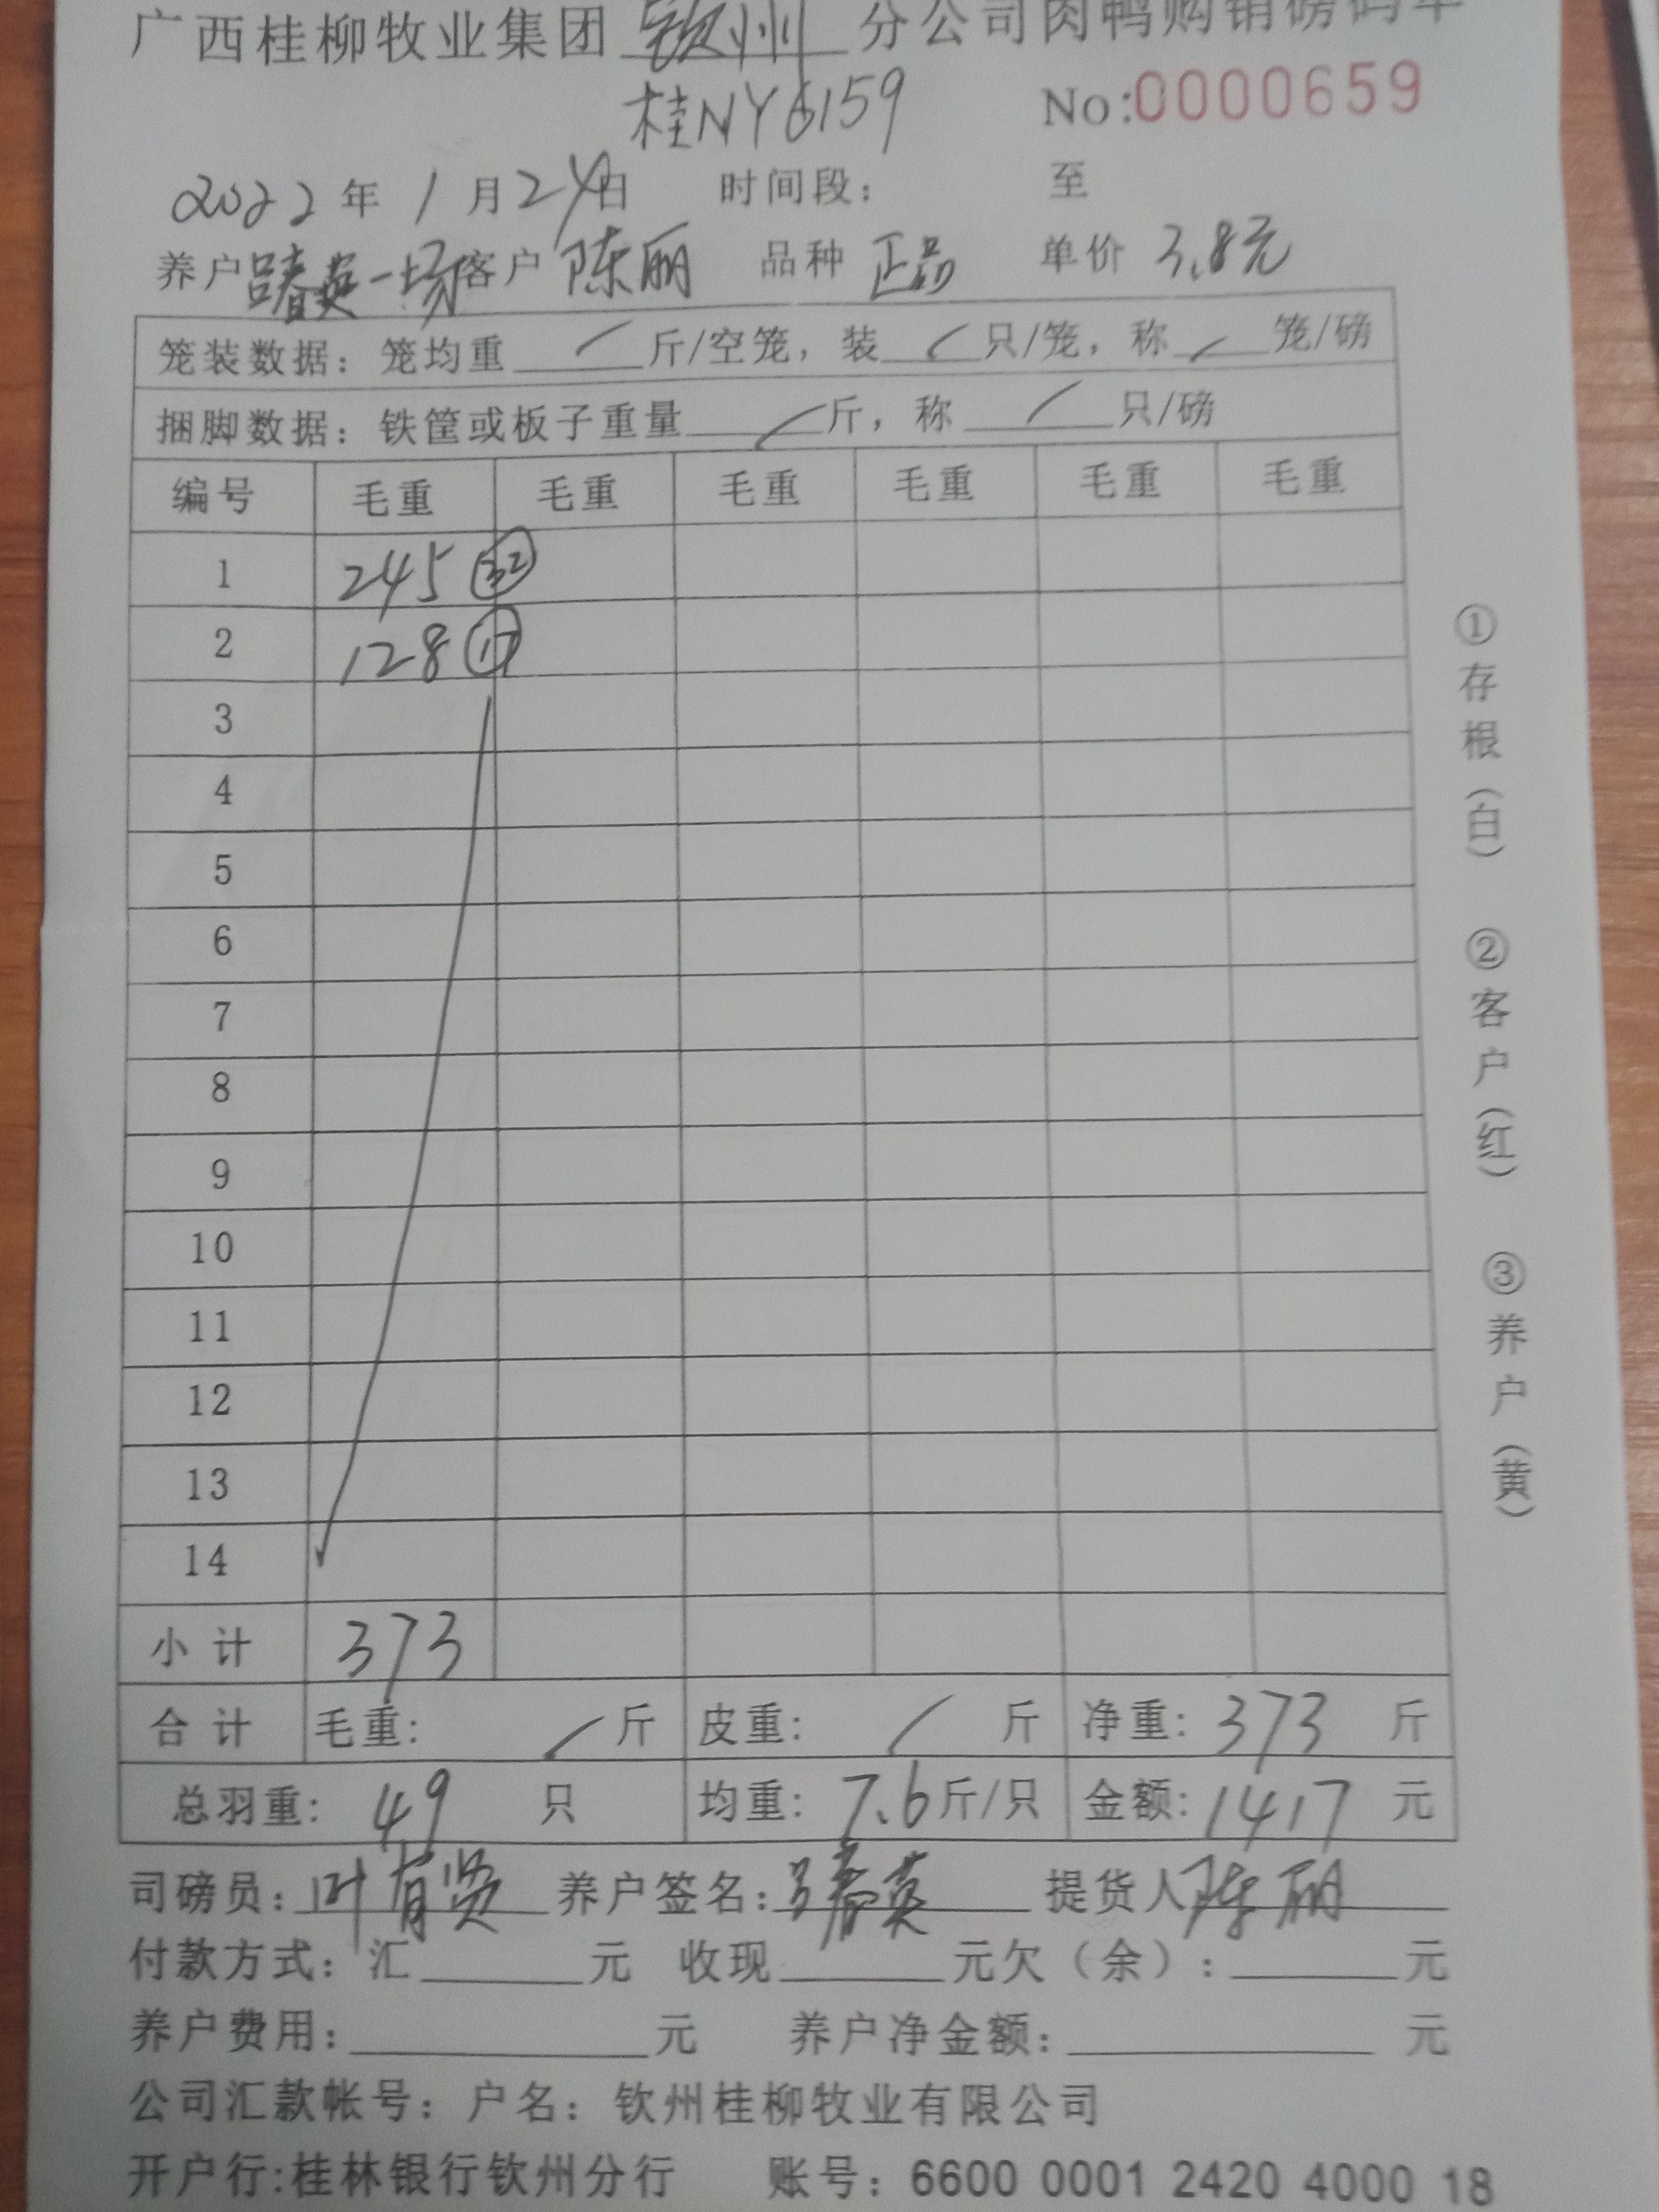 广西桂柳牧业集团 钦州 分公司肉鸭购销磅码单
桂NY6159 No:0000659
2022年 1月24日 时间段: 至
养户 吕春英一场 客户 陈丽 品种 正品 单价 3.8元
笼装数据: 笼均重 / 斤/空笼, 装 / 只/笼, 称 / 笼/磅
捆脚数据: 铁筐或板子重量 / 斤, 称 / 只/磅
编号 毛重 毛重 毛重 毛重 毛重 毛重
1 245 (32)
2 128 (17)
3
4
5
6
7
8
9
10
11
12
13
14
小计 373
合计 毛重: / 斤 皮重: / 斤 净重: 373 斤
总羽重: 49 只 均重: 7.6斤/只 金额: 1417 元
司磅员: 叶有贤 养户签名: 吕春英 提货人 陈丽
付款方式: 汇 元 收现 元欠(余): 元
养户费用: 元 养户净金额: 元
公司汇款帐号: 户名: 钦州桂柳牧业有限公司
开户行:桂林银行钦州分行 账号: 6600 0001 2420 4000 18
①存根(白) ②客户(红) ③养户(黄)